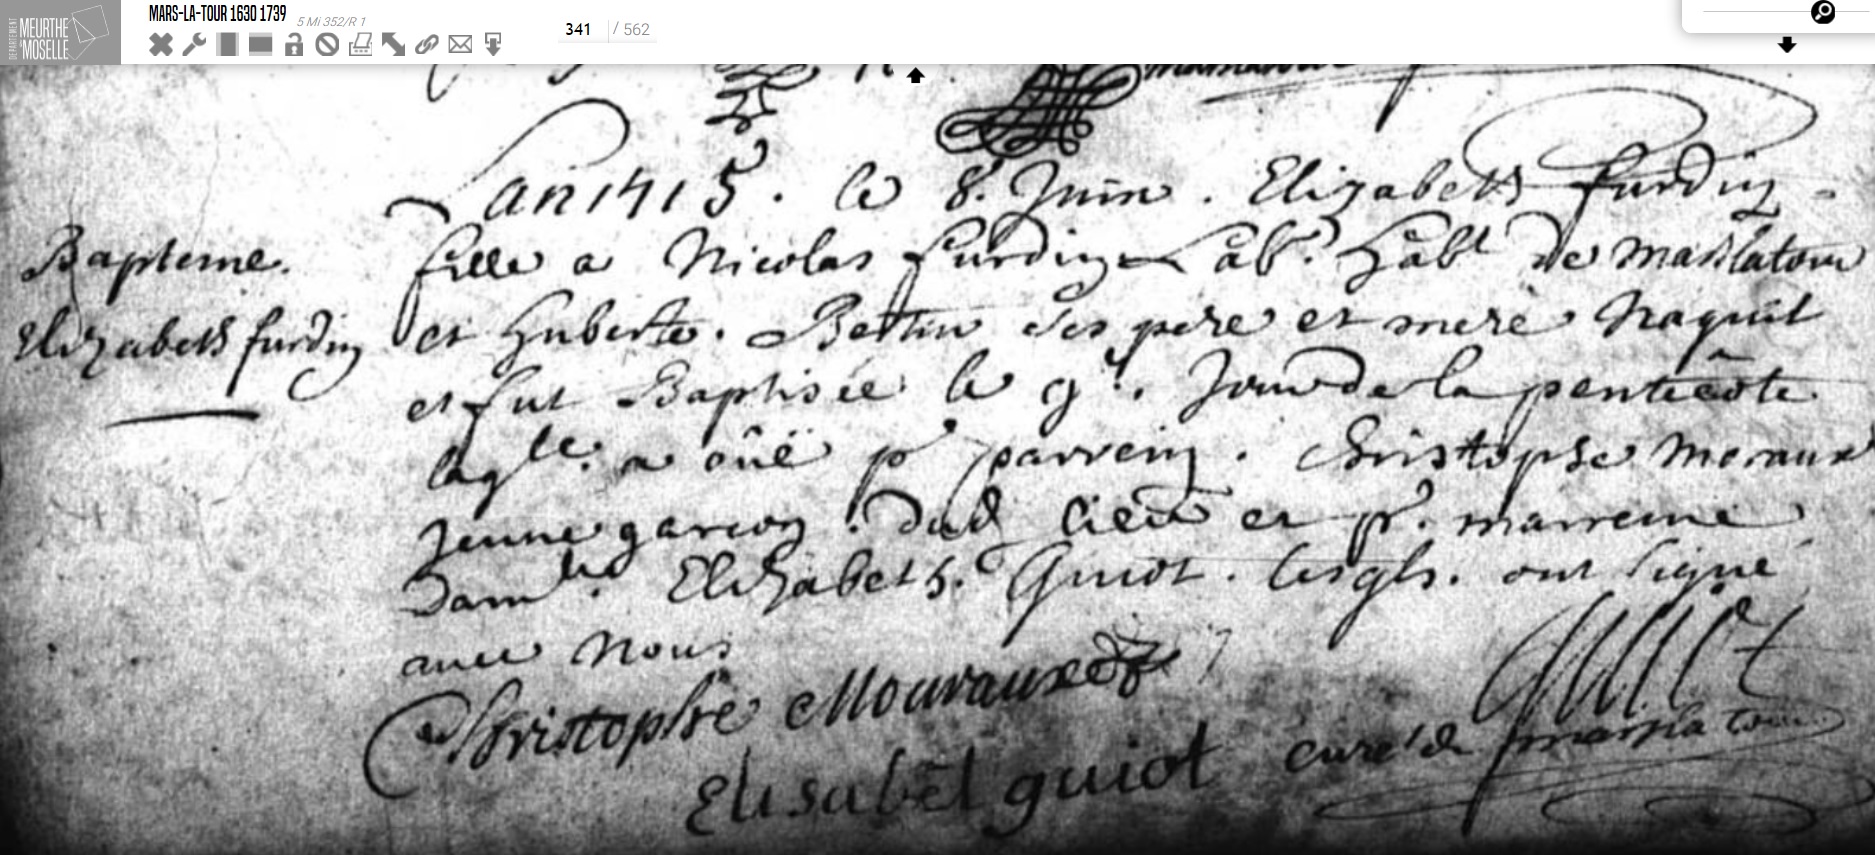 DÉPARTEMENT MEURTHE & MOSELLE
MARS-LA-TOUR 1630 1739
5 Mi 352/R 1
341 / 562
Lan 1715. le 8. Juin. Elizabeth furdin
Bapteme.
Elizabeth furdin
fille a Nicolas furdin Lab.r habt de marslatour
et huberte. Bertin ses pere et mere naquit
et fut Baptisée le 9e. Jour de la pentecôte
laqlle. a eüe pr parrein. Christophe moraux
Jeune garcon. dud lieu et pr. marreine
damlle. Elizabeth. Guiot. lesqls. ont signé
avec nous
Christophe Mouraux
Elisabet guiot
curé de marsla tour